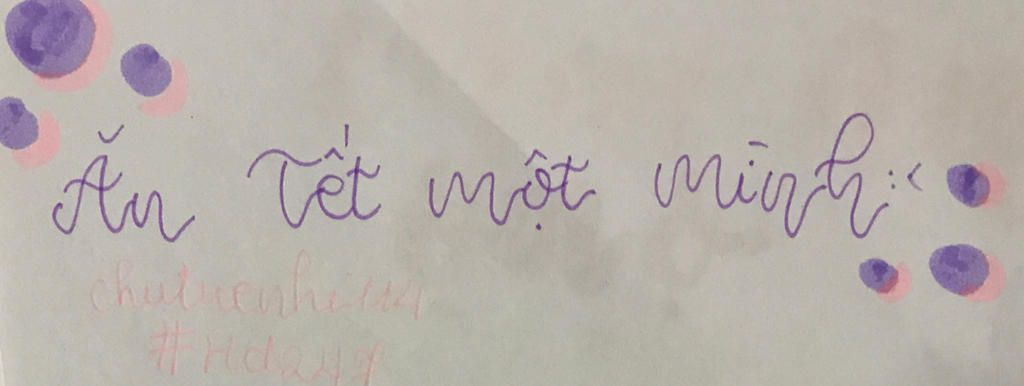 Ăn Tết một mình :<
chutuenhi114
#Hd247